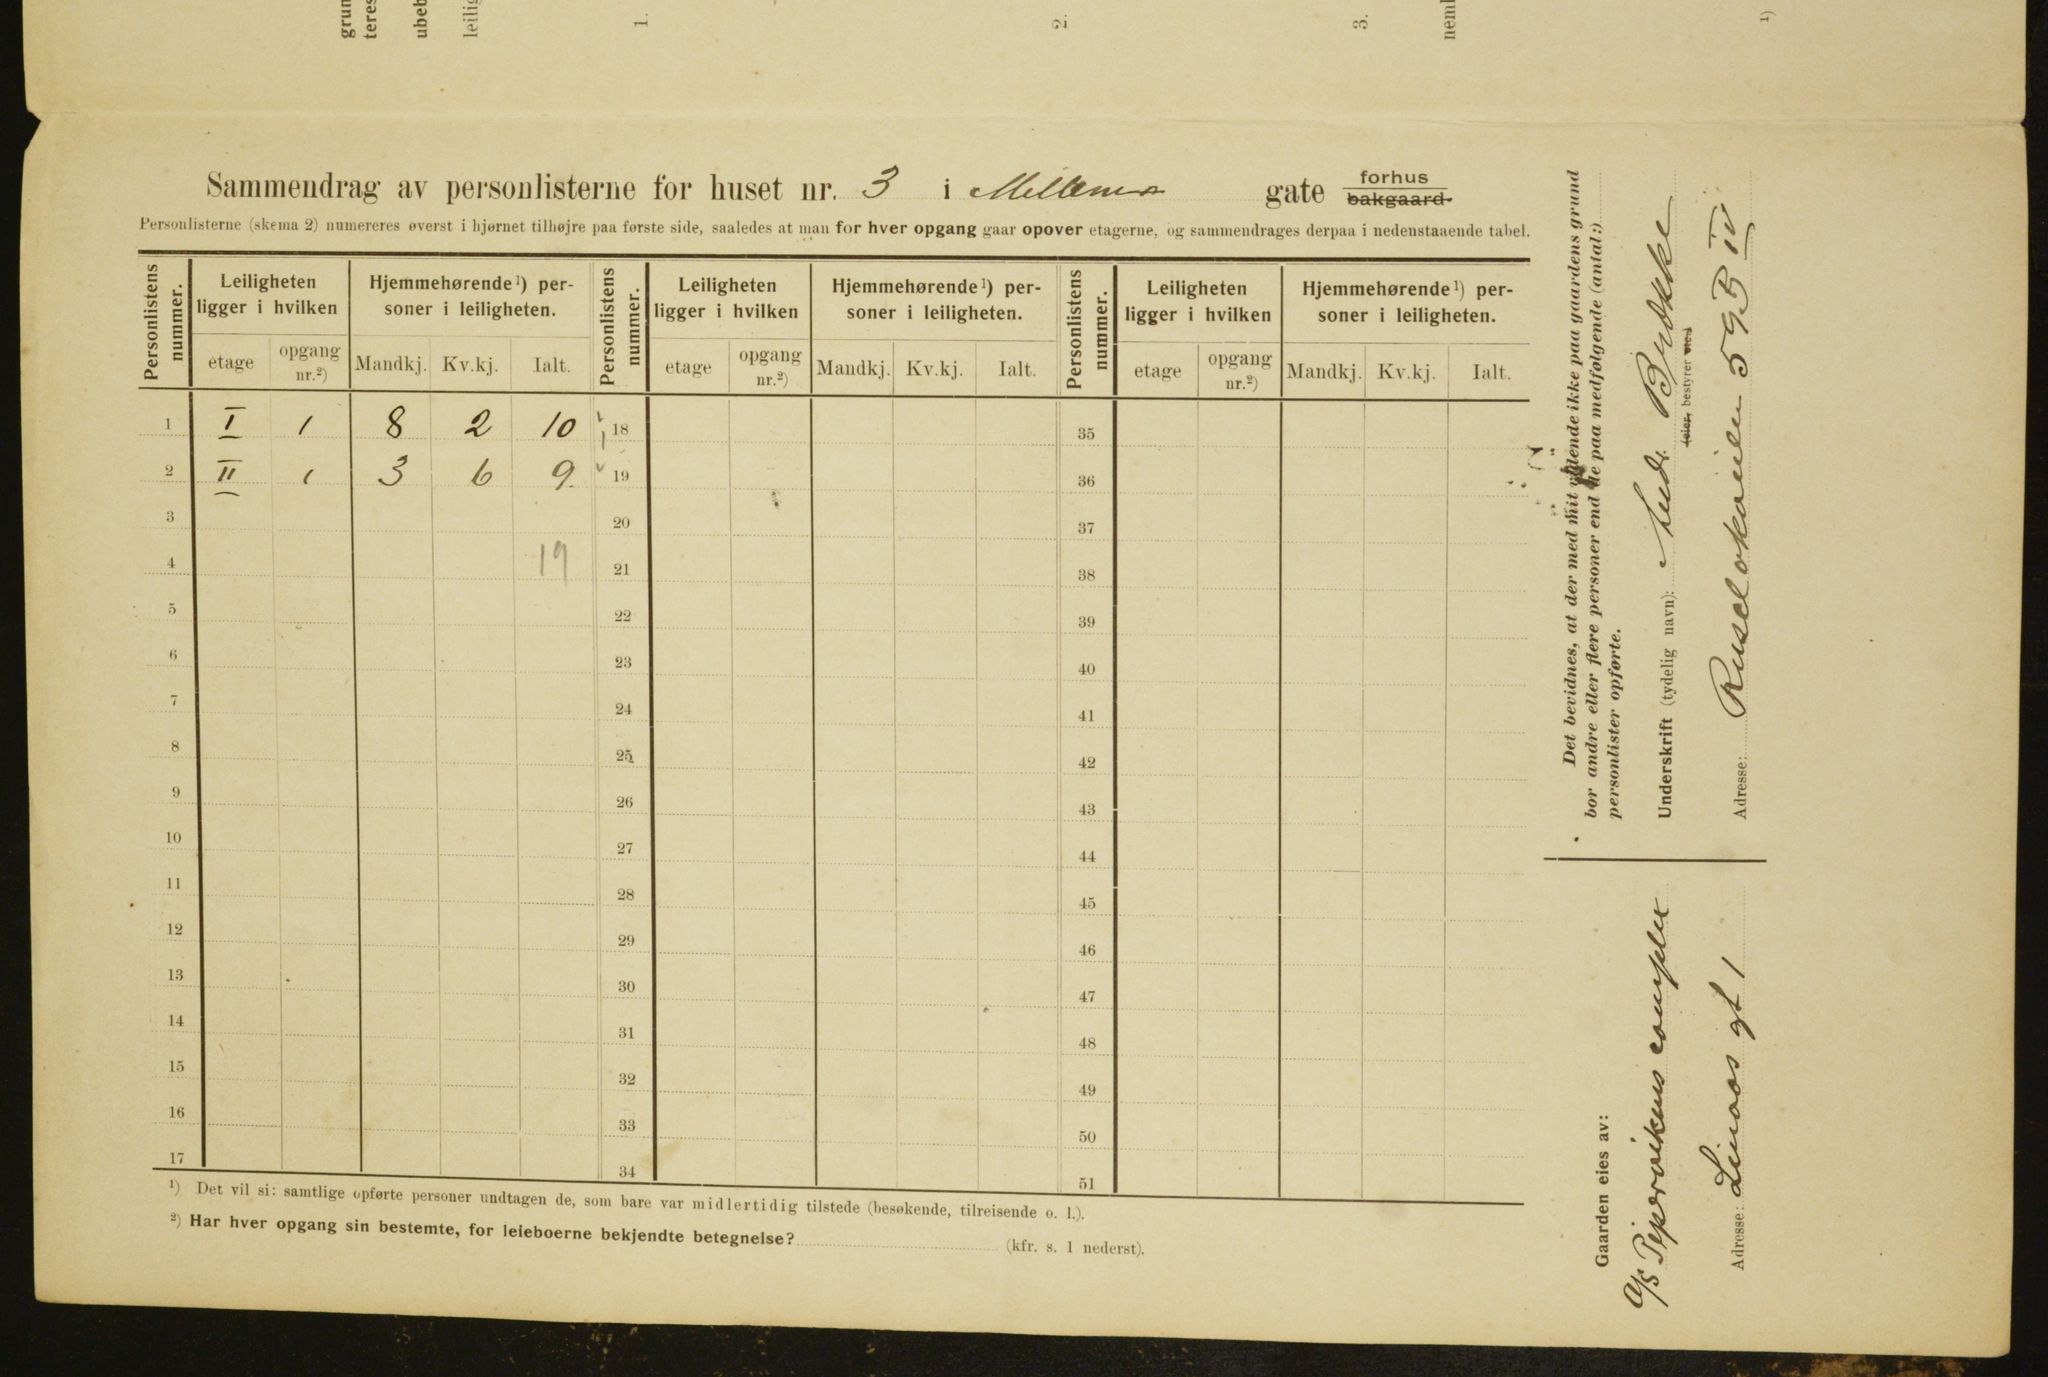 grun
teres
ubeb
leilig
1.
2.
3.
neml
1)
Sammendrag av personlisterne for huset nr. 3 i Mellem gate forhus
bakgaard.
Personlisterne (skema 2) numereres øverst i hjørnet tilhøjre paa første side, saaledes at man for hver opgang gaar opover etagerne, og sammendrages derpaa i nedenstaaende tabel.
Personlistens nummer. Leiligheten ligger i hvilken Hjemmehørende¹) personer i leiligheten. Personlistens nummer. Leiligheten ligger i hvilken Hjemmehørende¹) personer i leiligheten. Personlistens nummer. Leiligheten ligger i hvilken Hjemmehørende¹) personer i leiligheten.
etage opgang nr.²) Mandkj. Kv.kj. Ialt. etage opgang nr.²) Mandkj. Kv.kj. Ialt. etage opgang nr.²) Mandkj. Kv.kj. Ialt.
1 I 1 8 2 10 18 35
2 II 1 3 6 9. 19 36
3 20 37
4 19 21 38
5 22 39
6 23 40
7 24 41
8 25 42
9 26 43
10 27 44
11 28 45
12 29 46
13 30 47
14 31 48
15 32 49
16 33 50
17 34 51
¹) Det vil si: samtlige opførte personer undtagen de, som bare var midlertidig tilstede (besøkende, tilreisende o. l.).
²) Har hver opgang sin bestemte, for leieboerne bekjendte betegnelse? (kfr. s. 1 nederst).
Det bevidnes, at der med mit vidende ikke paa gaardens grund
bor andre eller flere personer end de paa medfølgende (antal:)
personlister opførte.
Underskrift (tydelig navn): Ludv. Brække
(eier, bestyrer etc.)
Adresse: Ruseløkveien 59 B IV
Gaarden eies av:
A/S Pipervikens complex
Adresse: Linaas gt 1